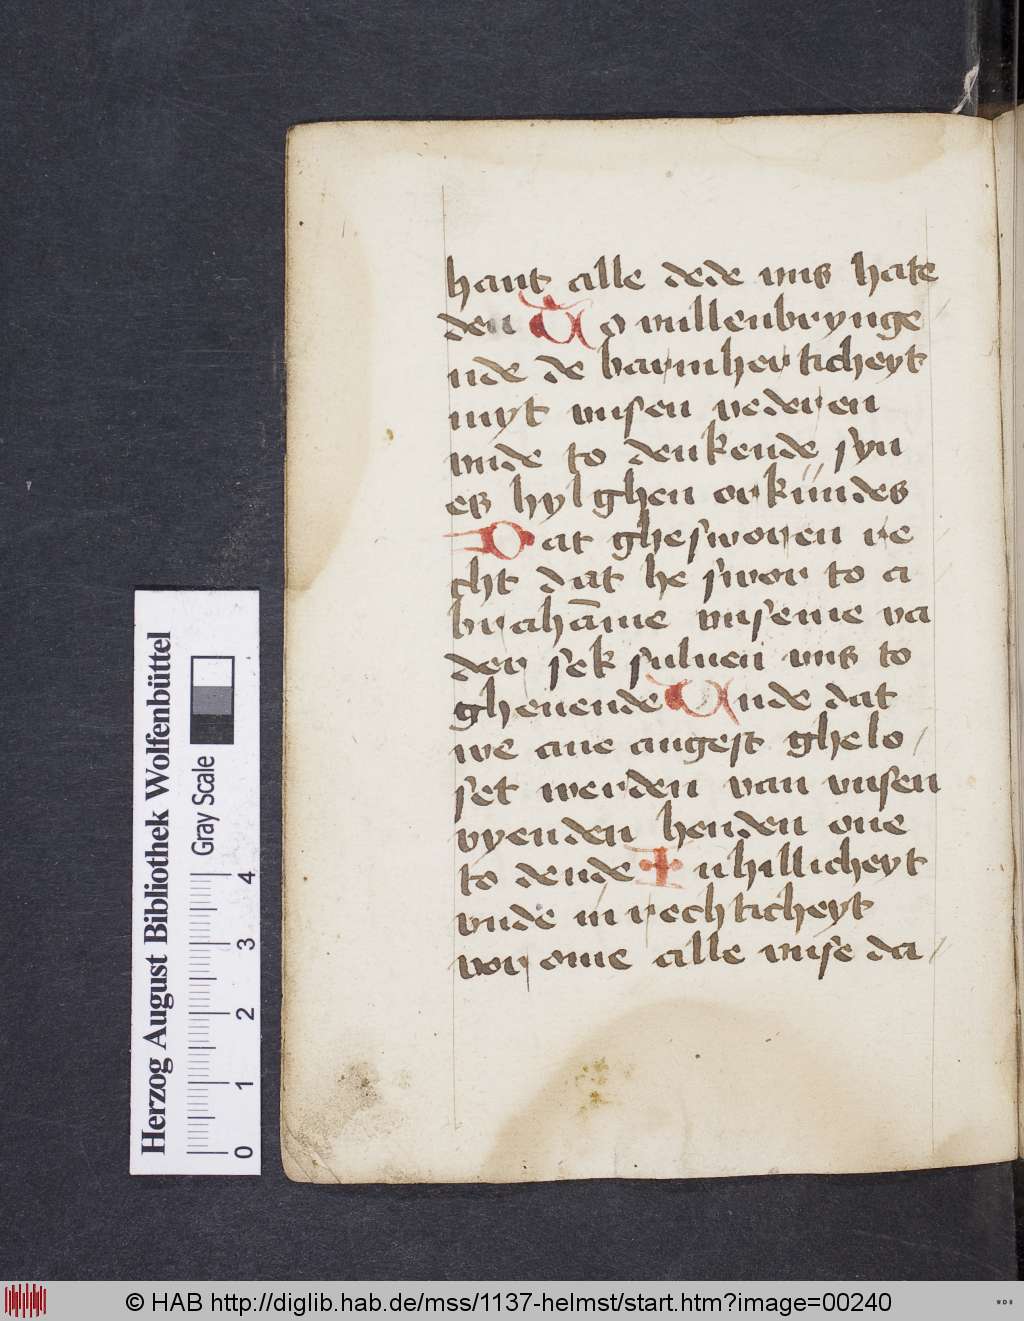 hant alle dede vns hate
den To vullenbrynge
nde de barmherticheyt
myt vnsen vederen
vnde to denkende syn
es hylghen orkundes
Dat ghesworen re
cht dat he swor to a
brahāme vnseme va
der sek suluen vns to
gheuende Vnde dat
we ane angest ghelo/
set werden van vnsen
vyenden henden one
to dende In hillicheyt
vnde in rechticheyt
vor ome alle vnse da/
Herzog August Bibliothek Wolfenbüttel
Gray Scale
0 1 2 3 4
© HAB http://diglib.hab.de/mss/1137-helmst/start.htm?image=00240